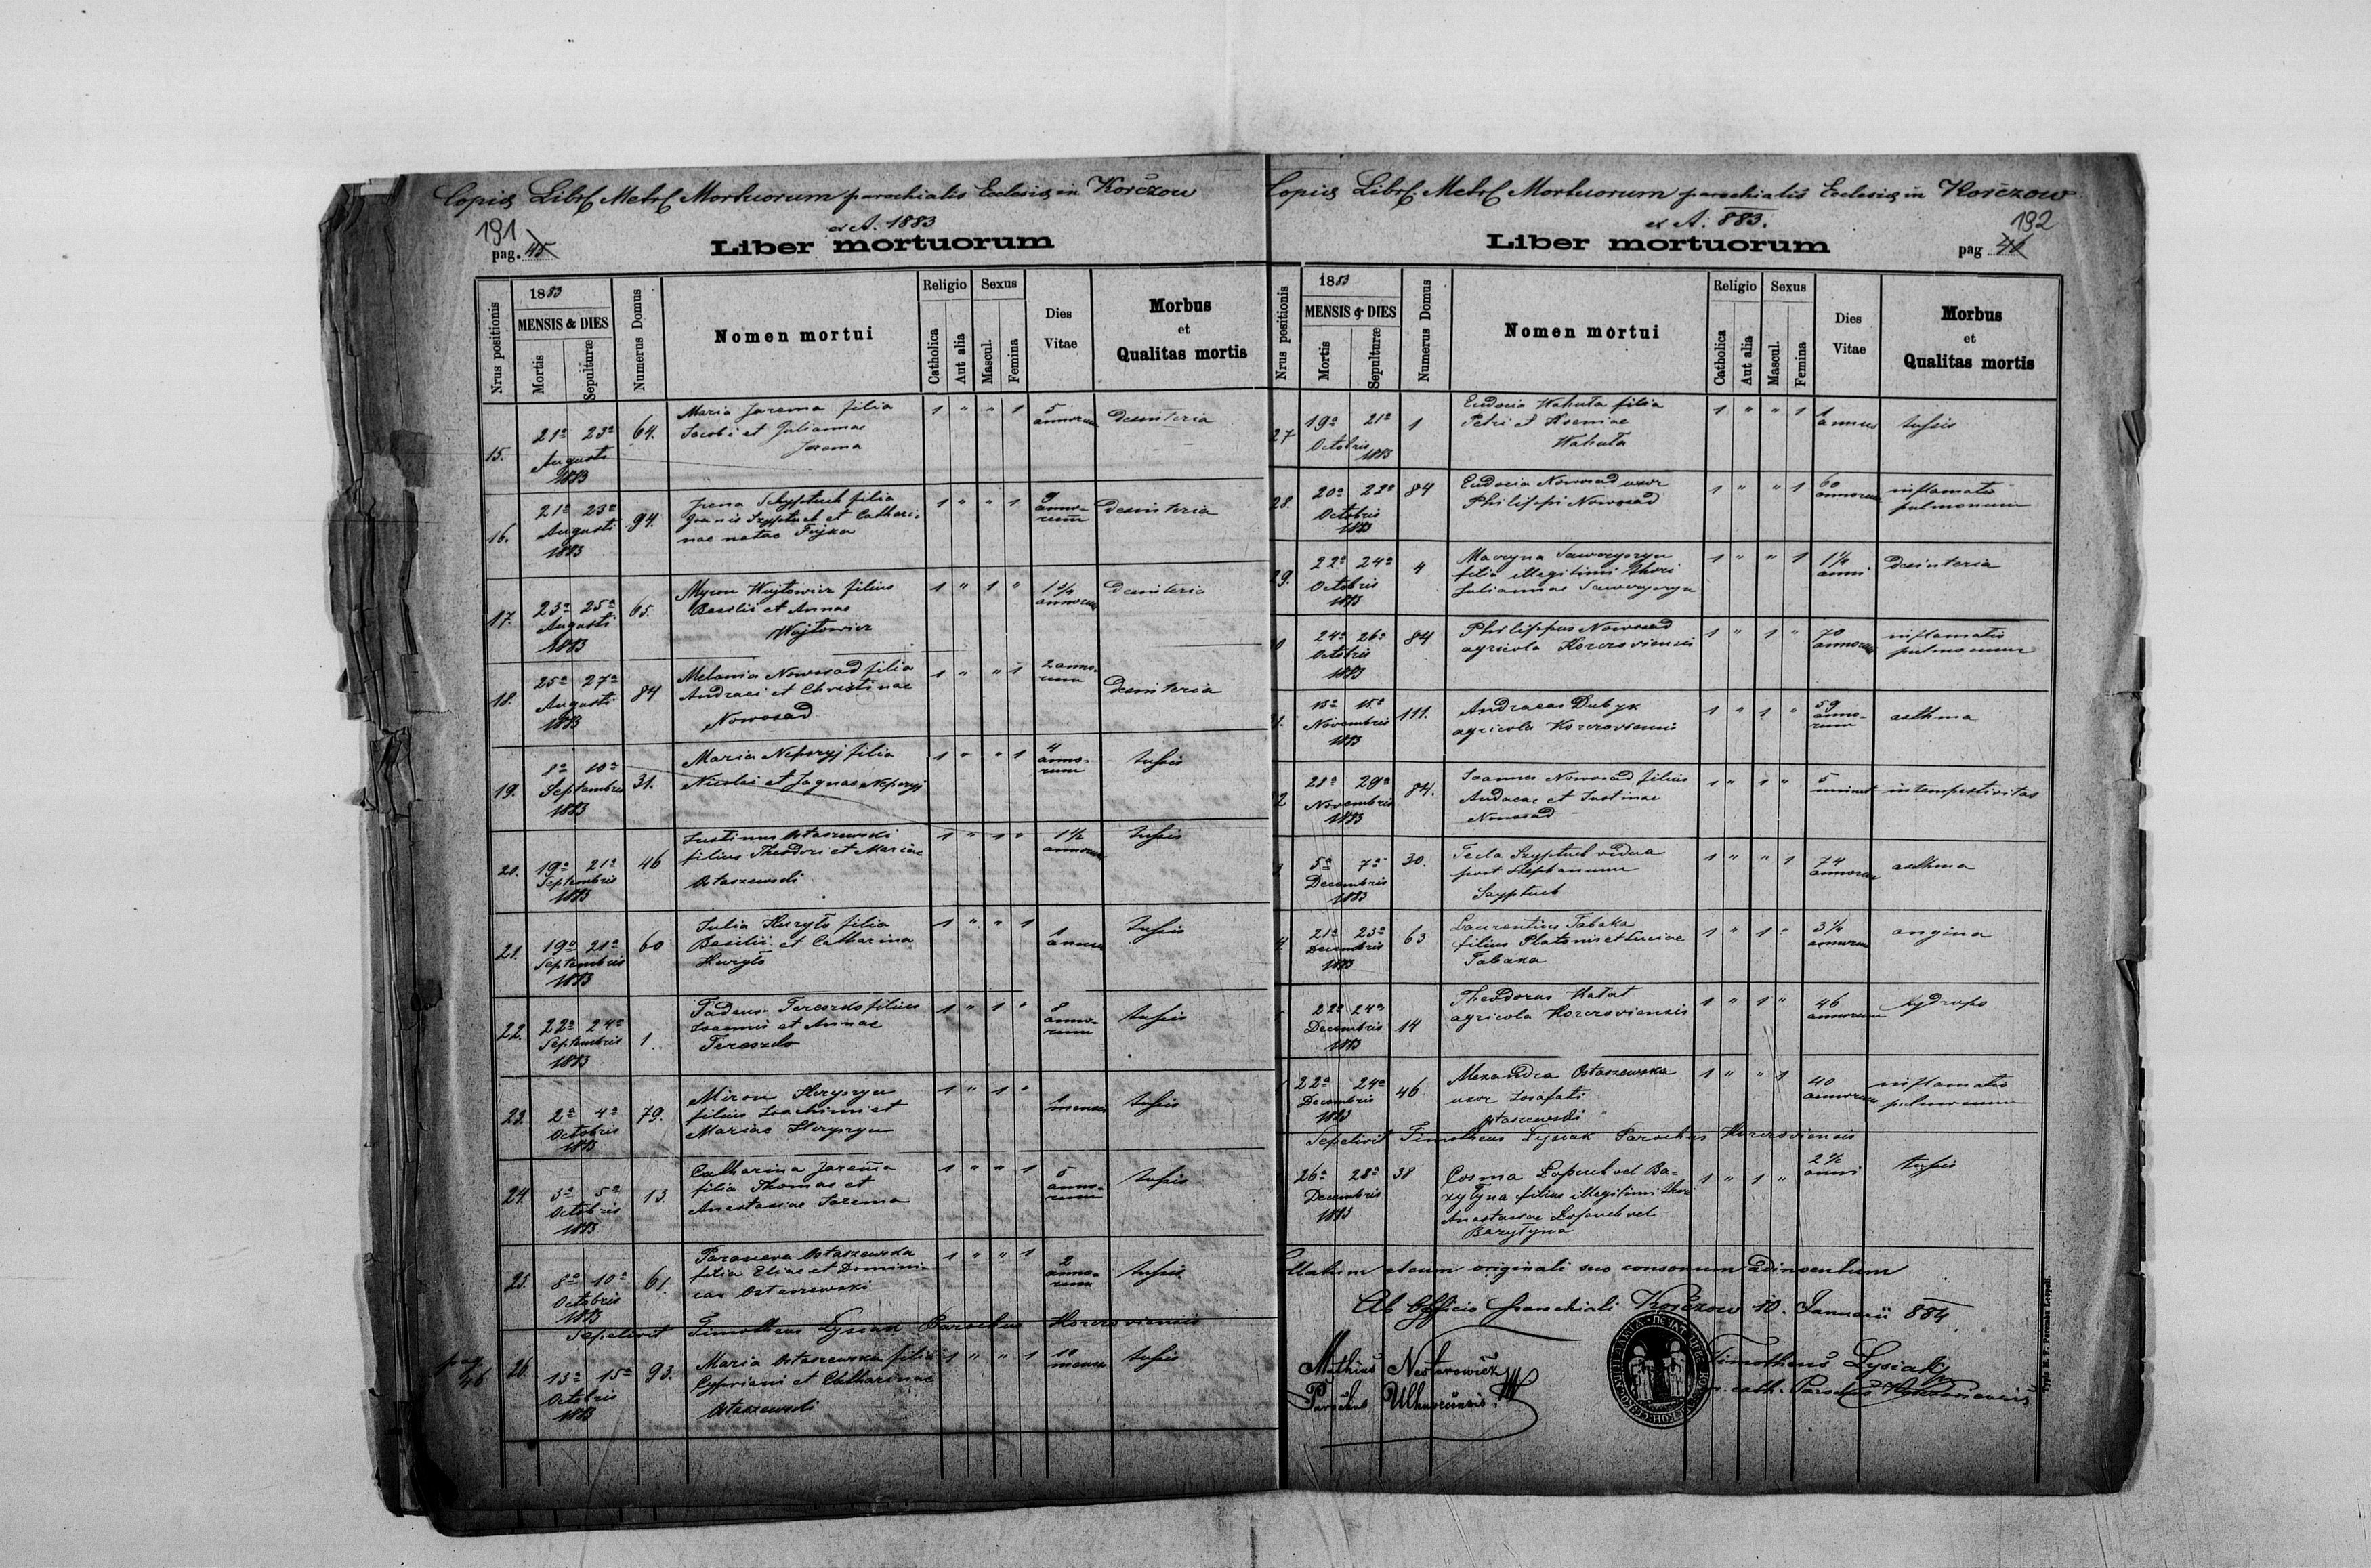 Copia Libri Metri Mortuorum parochialis Ecclesia in Korczow
191 ex A. 1883
pag. 45 Liber mortuorum
Nrus positionis
1883
MENSIS & DIES
Mortis
Sepulturæ
Numerus Domus
Nomen mortui
Religio
Catholica
Aut alia
Sexus
Mascul.
Femina
Dies Vitae
Morbus et Qualitas mortis
15. 21a 23a Augusti 1883 64. Maria Jarema filia 1 " " 1 5 annorum desinteria
Jacobi et Juliannae
Jarema
16. 21a 23a Augusti 1883 94. Irena Szyptuch filia 1 " " 1 annorum desinteria
Joanis Szyptuch et Cathari-
nae natae Fujka
17. 23a 25a Augusti 1883 65. Myron Wojtowicz filius 1 " 1 " annorum desinteria
Basilii et Annae
Wojtowicz
18. 25a 27a Augusti 1883 84 Melania Nowosad filia 1 " " 1 2 anno-rum desinteria
Andreei et Christinae
Nowosad
19. 8a 10a Septembris 1883 31. Maria Neporyj filia 1 " " 1 4 anno-rum tussis
Nicolai et Jagnae Neporyj
20. 19a 21a Septembris 1883 46 Justinus Ostaszewski 1 " 1 " 1½ annorum tussis
filius Theodori et Mariae
Ostaszewski
21. 19a 21a Septembris 1883 60 Julia Huryło filia 1 " " 1 1 annus tussis
Basilii et Catharina
Huryło
22. 22a 24a Septembris 1883 1 Tadeus 1 " 1 " 8 anno-rum tussis
filius
Joannis et Annae
23. 2a 4a Octobris 1883 79. Miron Hryoryn 1 " 1 " 1 mensis tussis
filius Joachimi et
Mariae Hryoryn
24. 3a 5a Octobris 1883 13. Catharina Jarema 1 " " 1 5 anno-rum tussis
filia Thomas et
Anastasiae Jarema
25. 8a 10a Octobris 1883 61. Paraneva Ostaszewska 1 " " 1 2 anno-rum tussis
filia Eliae et Domini-
cae Ostaszewski
Sepelivit Timotheus Lysiak Parochus Korczoviensis
pag 46
26. 13a 15a Octobris 1883 93. Maria Ostaszewska filia 1 " " 1 10 mens. tussis
Cypriani et Catharinae
Ostaszewski
Copia Libri Metri Mortuorum parochialis Ecclesia in Korczow
ex A. 883. 192
Liber mortuorum pag 46
Nrus positionis
1883
MENSIS & DIES
Mortis
Sepulturæ
Numerus Domus
Nomen mortui
Religio
Catholica
Aut alia
Sexus
Mascul.
Femina
Dies Vitae
Morbus et Qualitas mortis
27 19a 21a Octobris 1883 1 Eudocia Wahuta filia 1 " " 1 1 annus tussis
Petri et Kseniae
Wahuta
28. 20a 22a Octobris 1883 84 Eudocia Nowosad uxor 1 " " 1 60 annorum inflamatio pulmonum
Philippi Nowosad
29. 22a 24a Octobris 1883 4 Maryna 1 " " 1 1½ anni desinteria
filia illegitimi thori
Juliannae
24a 26a Octobris 1883 84 Philippus Nowosad 1 " 1 " 70 annorum inflamatio pulmonum
agricola Korczoviensis
15a Novembris 1883 111. Andreas Dubyk 1 " 1 " 59 anno-rum asthma
agricola Korczoviensis
28a 29a Novembris 1883 84. Joannes Nowosad filius 1 " 1 " 5 minut intempestivitas
Andreae et Justinae
Nowosad
5a 7a Decembris 1883 30. Tecla Szyptuch vidua 1 " " 1 74 annorum asthma
post Stephanum
Szyptuch
21a 23a Decembris 1883 63 Laurentius Tabaka 1 " 1 " 3½ annorum angina
filius Platonis et Luciae
Tabaka
22a 24a Decembris 1883 14 Theodorus Hatat 1 " 1 " 46 annorum hydrops
agricola Korczoviensis
22a 24a Decembris 1883 46 Alexandra Ostaszewska 1 " " 1 40 annorum inflamatio pulmonum
uxor Josafati
Ostaszewski
Sepelivit Timotheus Lysiak Parochus Korczoviensis
26a 28a Decembris 1883 38 Cosma Łopuch vel Ba- 1 " 1 " 2½ anni tussis
zyłyna filius illegitimi thori
Anastasiae Łopuch vel
Bazyłyna
Collatum et cum originali suo consonum adinventum
Ab Officio parochiali Korczow 10. Januarii 884.
Mathias Nesterowicz
Parochus Ulhowcensis
Timotheus Lysiak
gr. cath. Parochus Korczoviensis